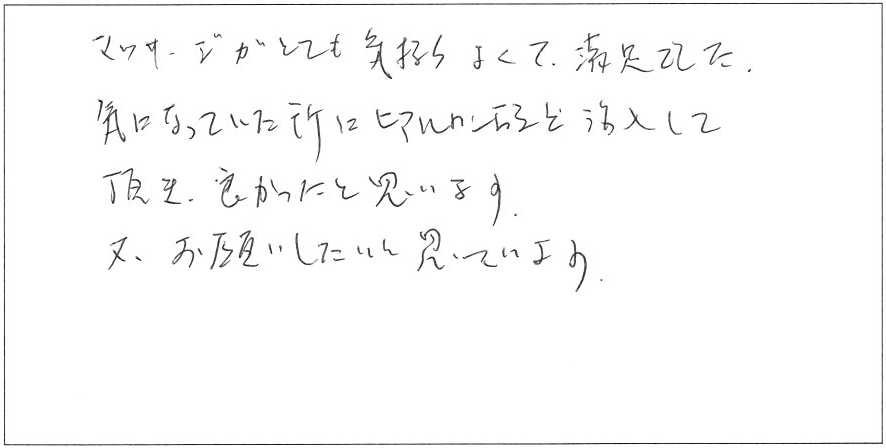 マッサージがとても気持ちよくて、満足でした。
気になっていた所にヒアルロン酸を注入して
頂き、良かったと思います。
又、お願いしたいと思っています。